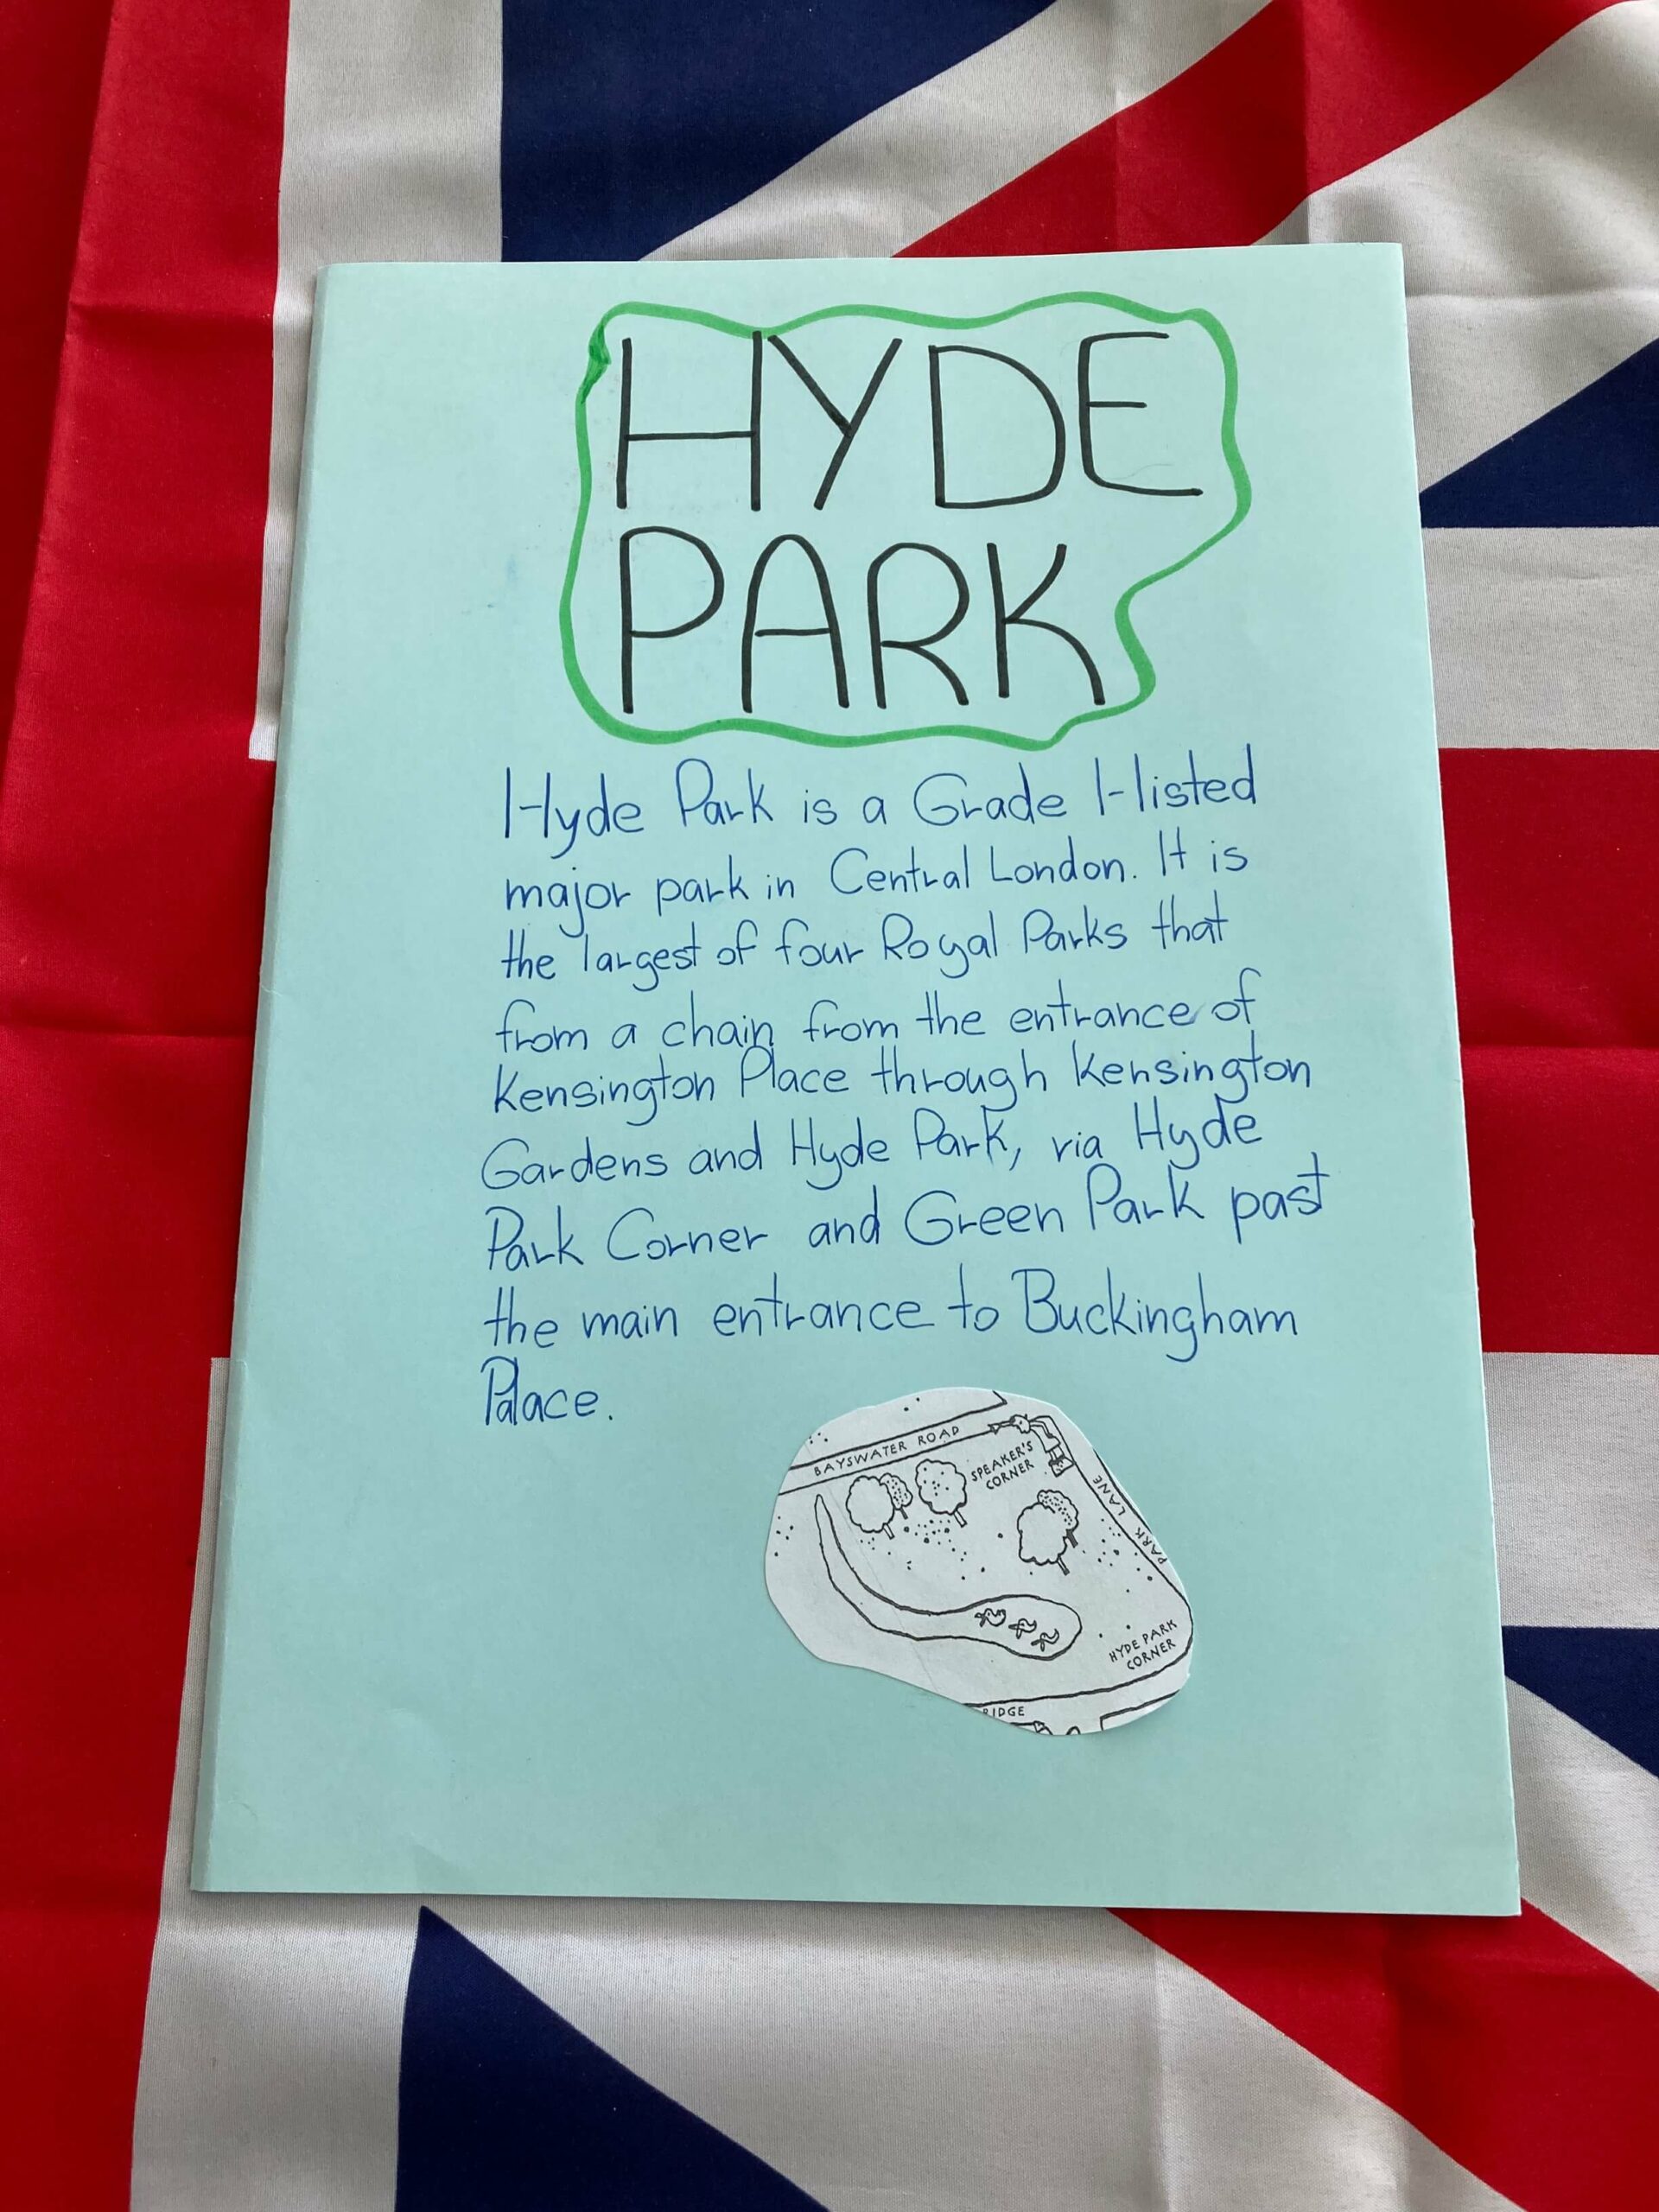 HYDE
PARK
Hyde Park is a Grade I-listed
major park in Central London. It is
the largest of four Royal Parks that
from a chain from the entrance of
Kensington Place through Kensington
Gardens and Hyde Park, via Hyde
Park Corner and Green Park past
the main entrance to Buckingham
Palace.
BAYSWATER ROAD
SPEAKER'S
CORNER
PARK LANE
HYDE PARK
CORNER
RIDGE